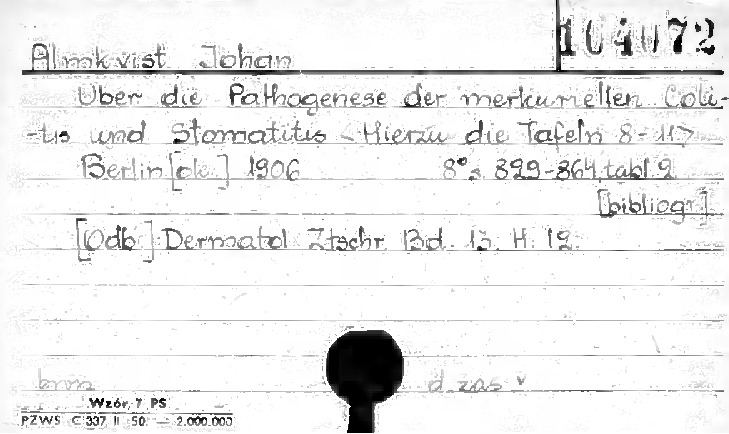 104072
Almkvist Johan
Über die Pathogenese der merkuriellen Coli-
-tis und Stomatitis <Hierzu die Tafeln 8-11>
Berlin [dr.] 1906 8° s. 829-864, tabl. 2
[bibliogr.]
[Odb.] Dermatol. Ztschr. Bd. 13. H. 12.
bron d. zas v
Wzór, 7 PS
PZWS C 337 II 50. — 2.000.000